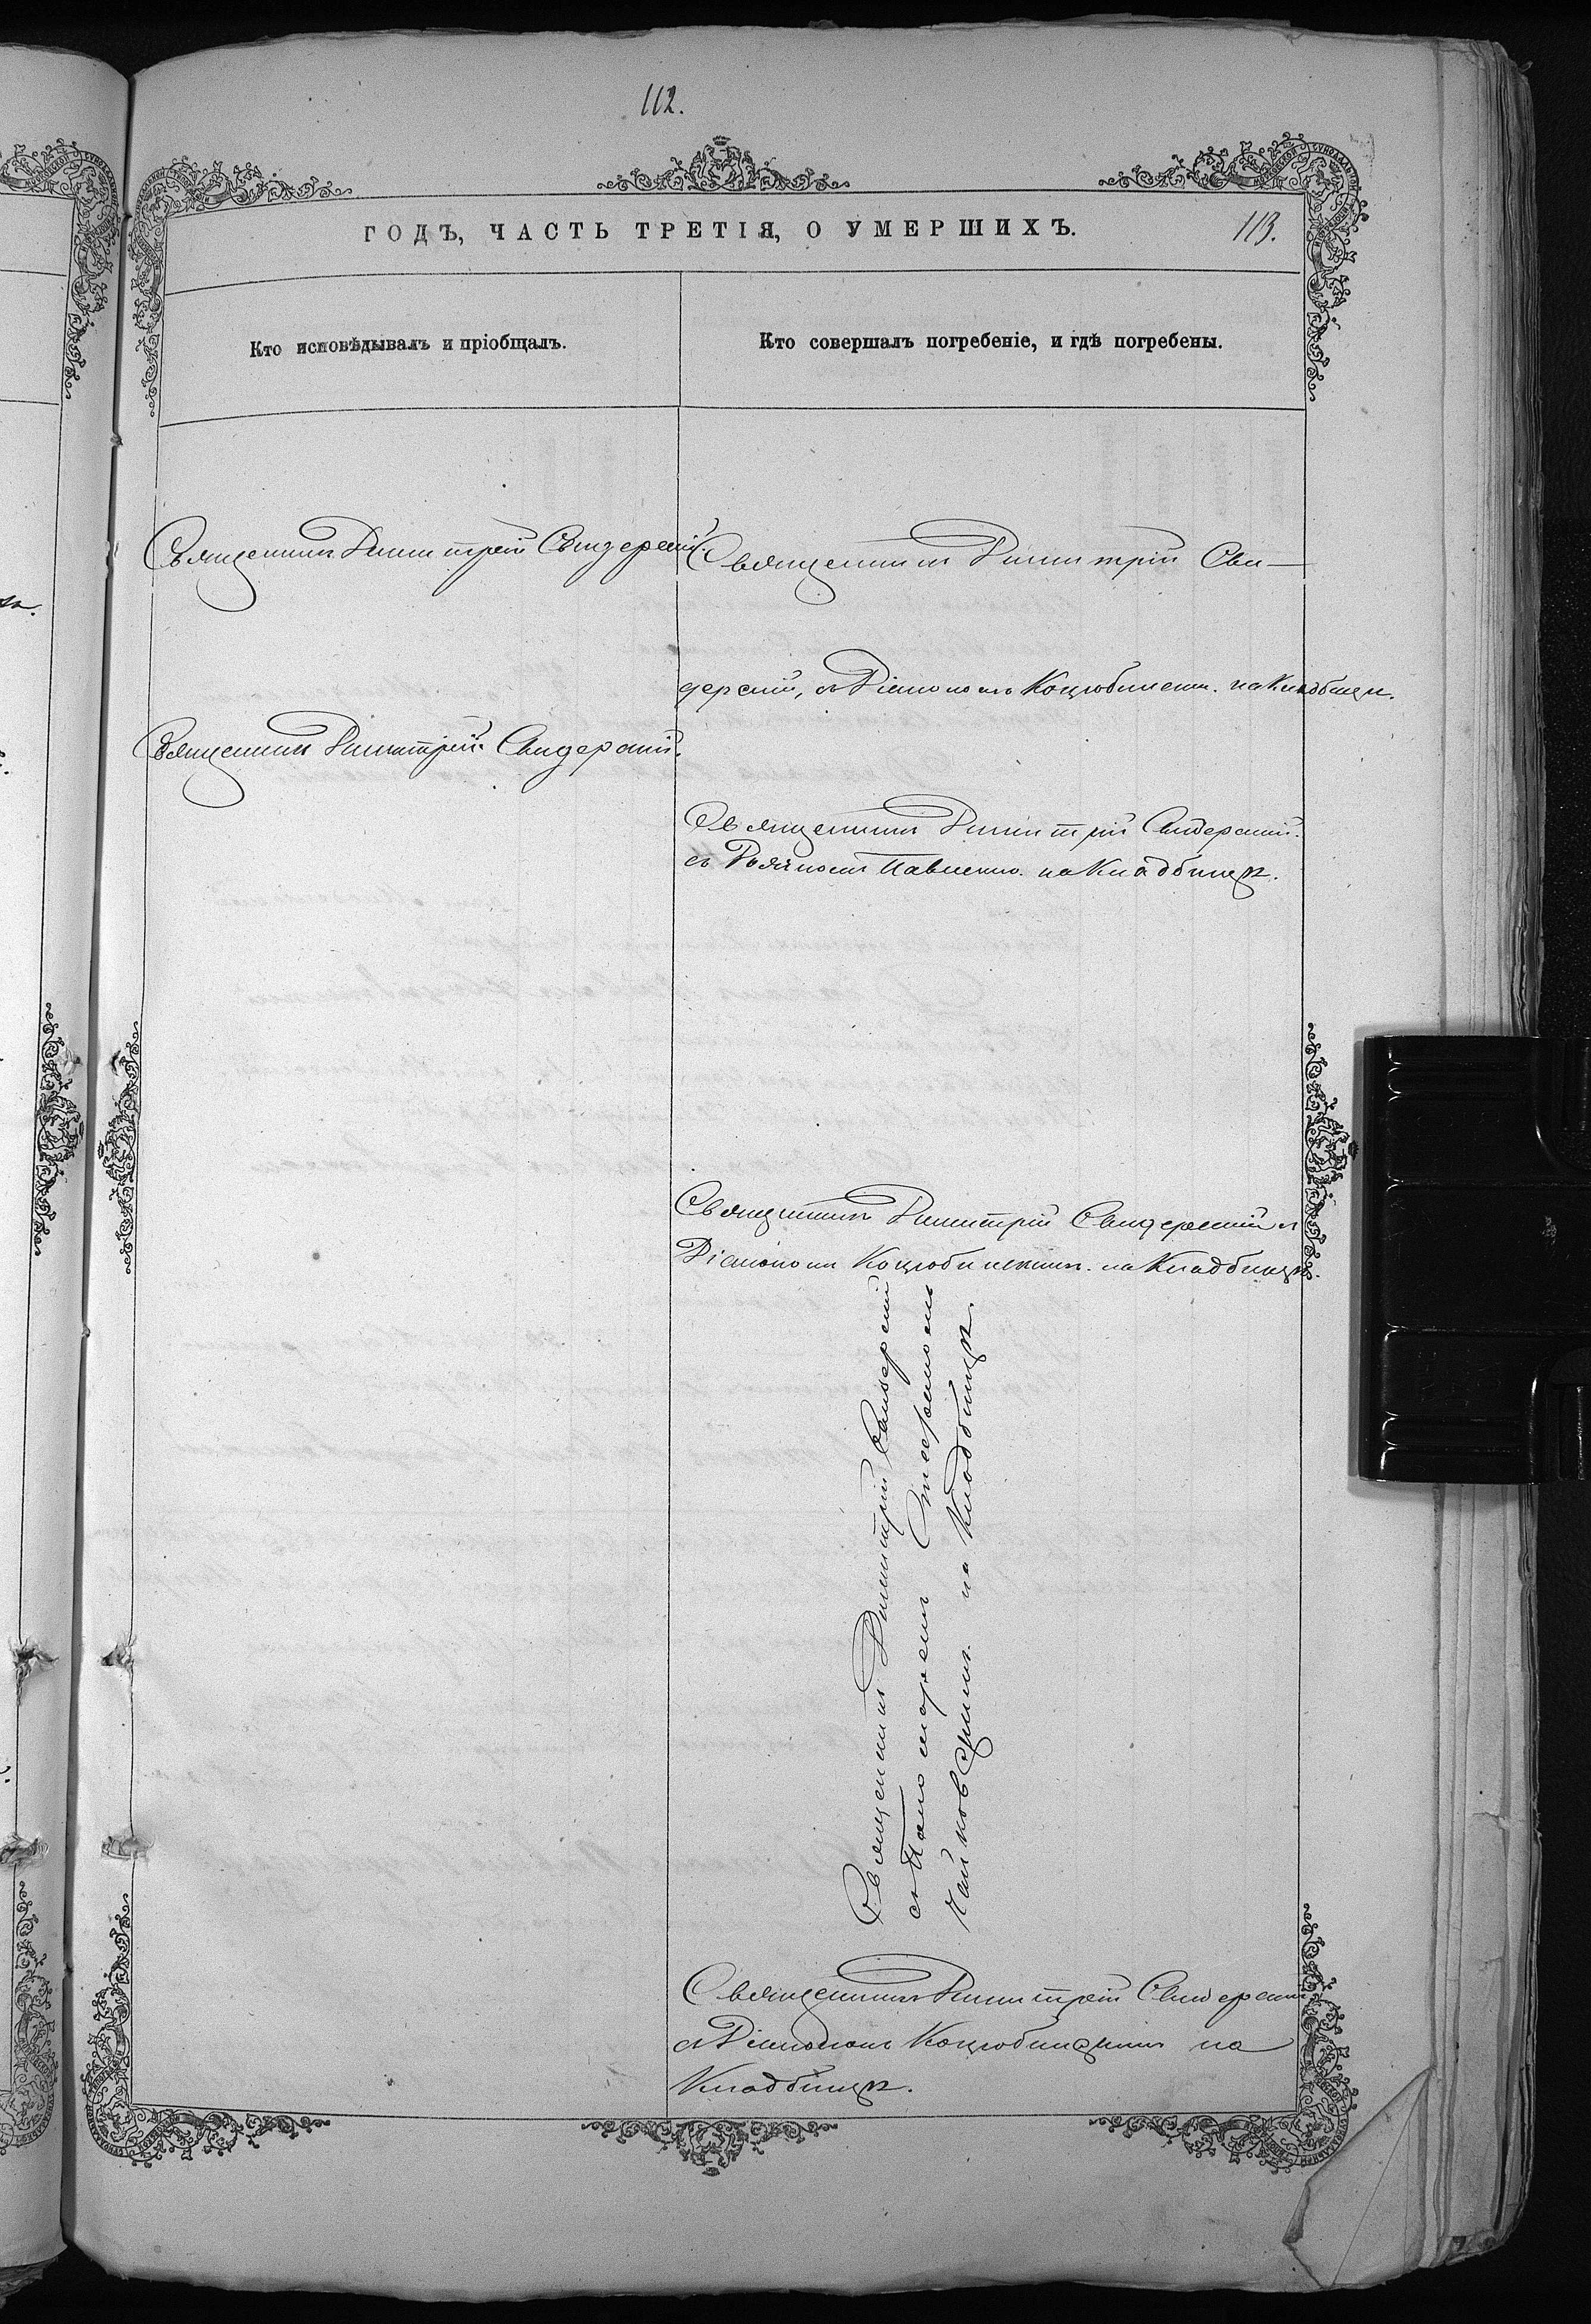 112.
ГОДЪ, ЧАСТЬ ТРЕТІЯ, О УМЕРШИХЪ.
113.
Кто исповѣдывалъ и пріобщалъ.
Кто совершалъ погребеніе, и гдѣ погребены.
Священникъ Димитрій Свидерскій.
Священникъ Димитрій Сви-
дерскій, съ Діакономъ Коцюбинскимъ. на Кладбищѣ.
Священникъ Димитрій Свидерскій.
Священникъ Димитрій Свидерскій.
съ Павленко. на Кладбищѣ.
Священникъ Димитрій Свидерскій съ
Діакономъ Коцюбинскимъ. на Кладбищѣ.
Священникъ Димитрій Свидерскій
съ Пономаремъ Стефаномъ
Чайковскимъ. на Кладбищѣ.
Священникъ Димитрій Свидерскій
съ Діакономъ Коцюбинскимъ на
Кладбищѣ.